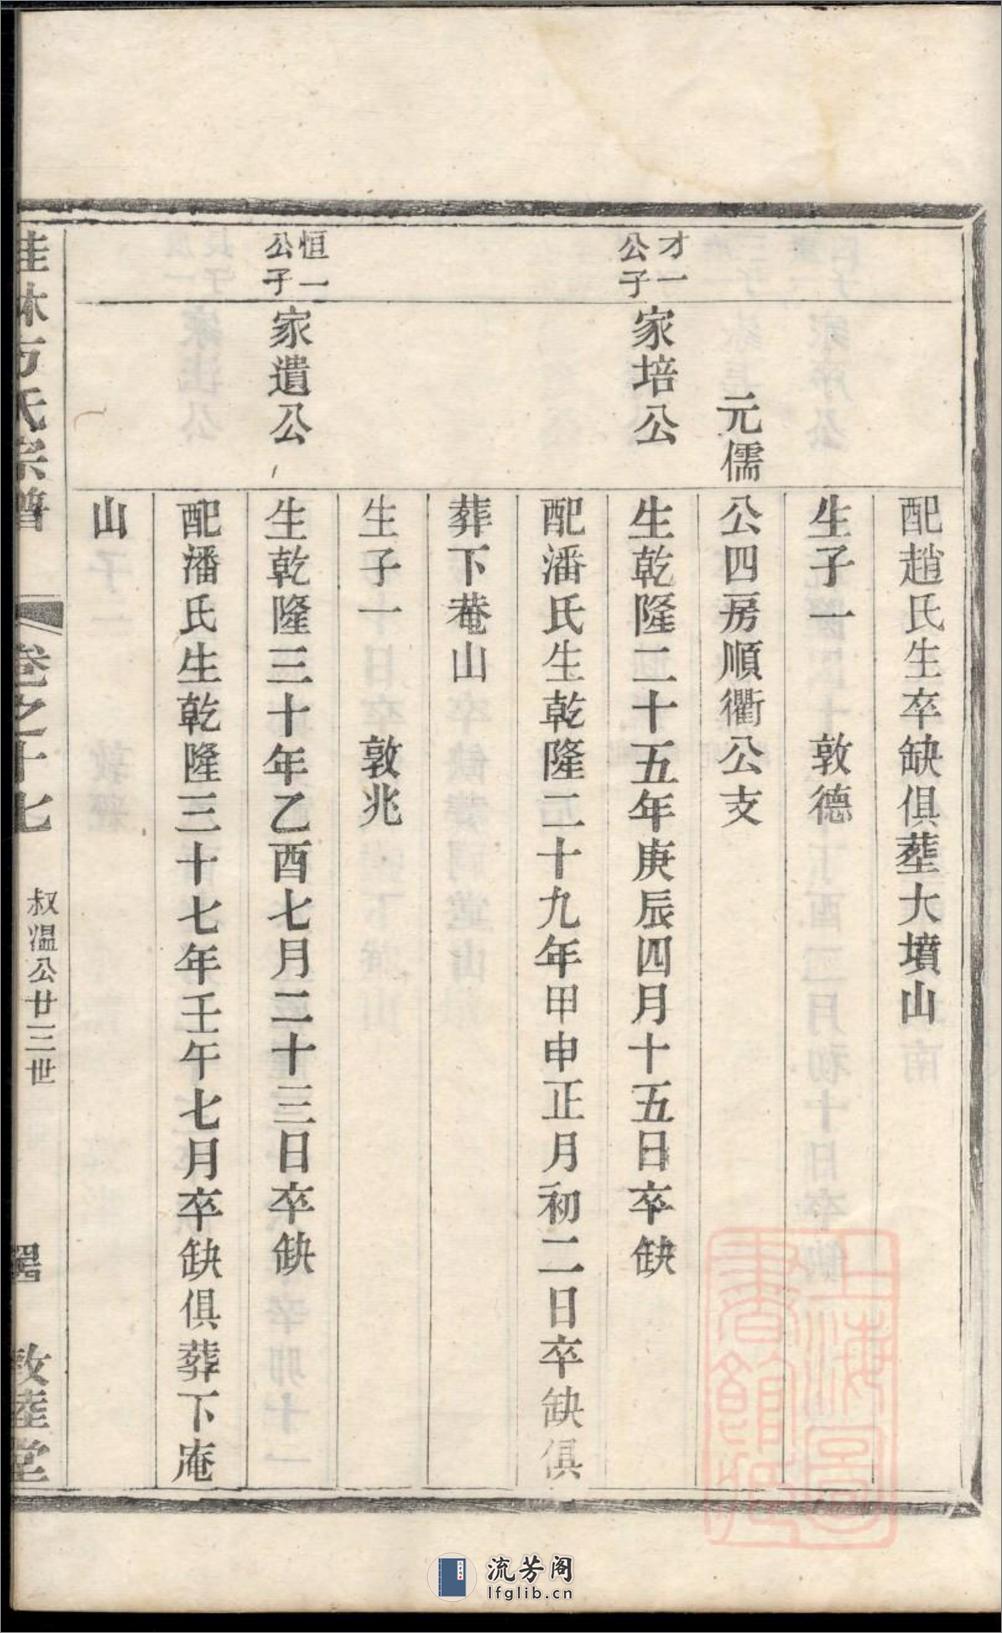 配趙氏生卒缺俱葬大墳山
生子一　敦德
元儒公四房順衢公支
才一公子
家培公
生乾隆二十五年庚辰四月十五日卒缺
配潘氏生乾隆二十九年甲申正月初二日卒缺俱
葬下菴山
生子一　敦兆
恒一公子
家遺公
生乾隆三十年乙酉七月二十三日卒缺
配潘氏生乾隆三十七年壬午七月卒缺俱葬下庵
山
桂林方氏宗譜　卷之十七　叔溫公廿三世　敦睦堂
上海圖書館藏
流芳阁
lfglib.cn